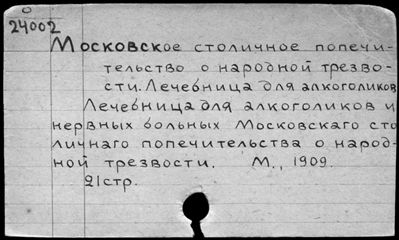 24002
Московское столичное попечи-
тельство о народной трезво-
сти. Лечебница для алкоголиков
Лечебница для алкоголиков и
нервных больных Московскаго сто
личнаго попечительства о народ-
ной трезвости. М., 1909.
21стр.